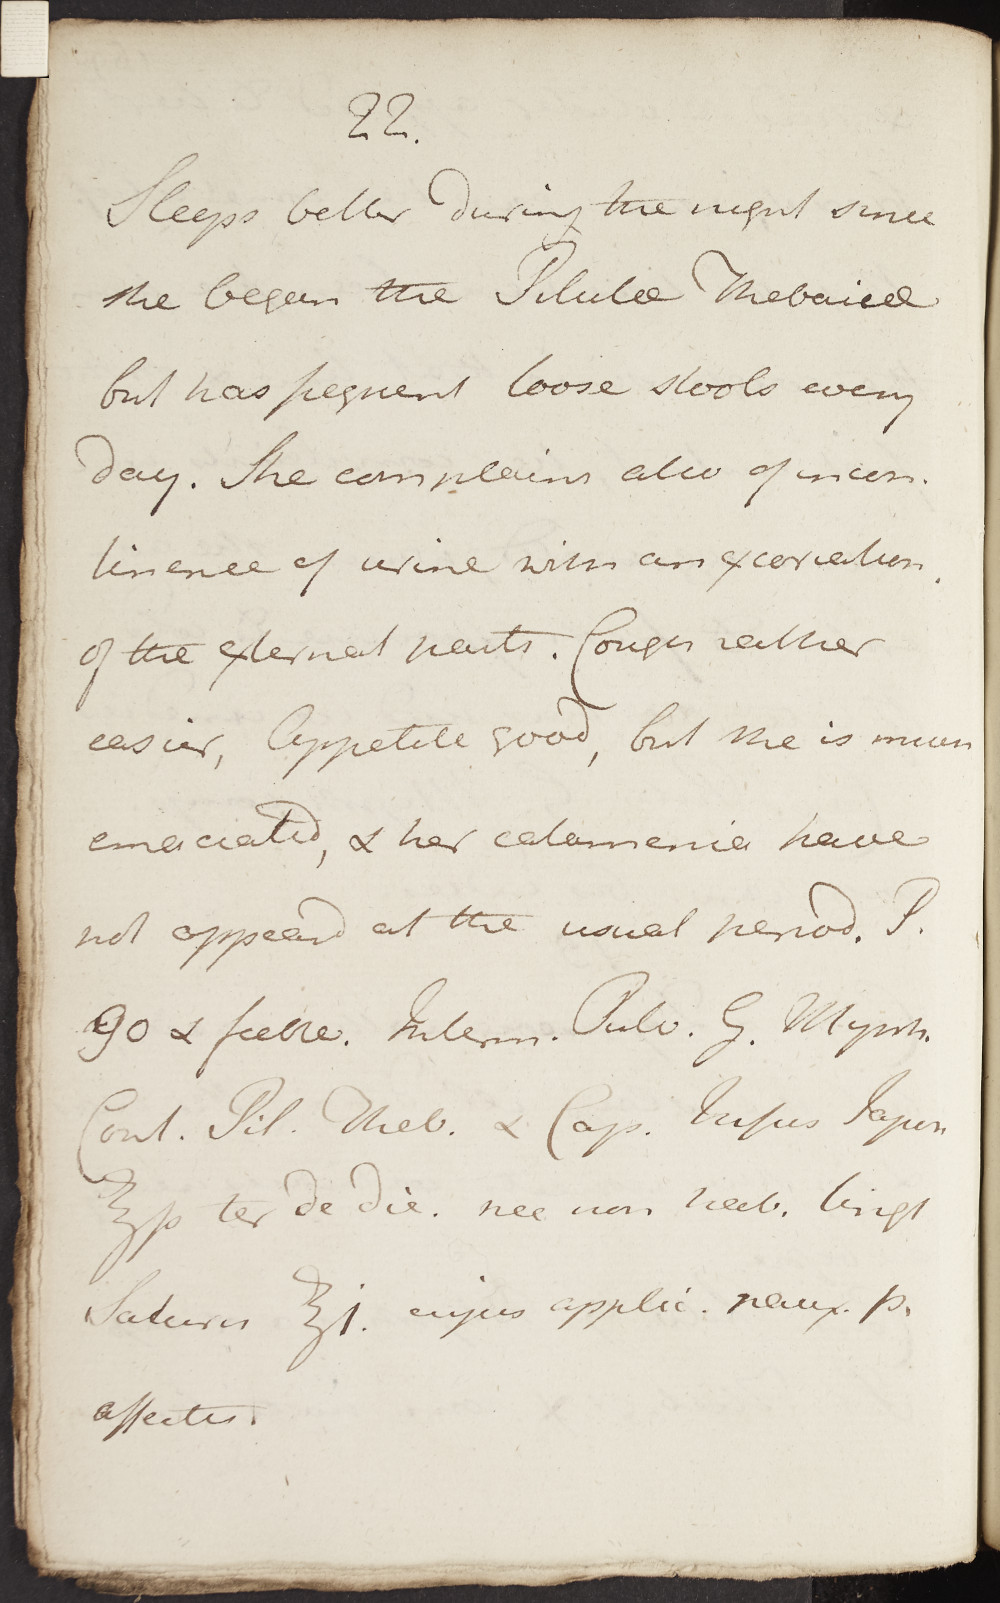 22.
Sleeps better during the night since
she began the Pilulæ Thebaicæ
but has frequent loose stools every
day. She complains also of incon-
tinence of urine with an excoriation
of the external parts. Cough rather
easier, Appetite good, but she is much
emaciated, & her catamenia have
not appeard at the usual period. P.
90 & feeble. Interm. Pulv. G. Myrrh.
Cont. Pil. Theb. & Cap. Infus Japon
℥ß ter de die. nec non heb. Lingt
Saturn ℥j. cujus applic. paux. p.
affectis.